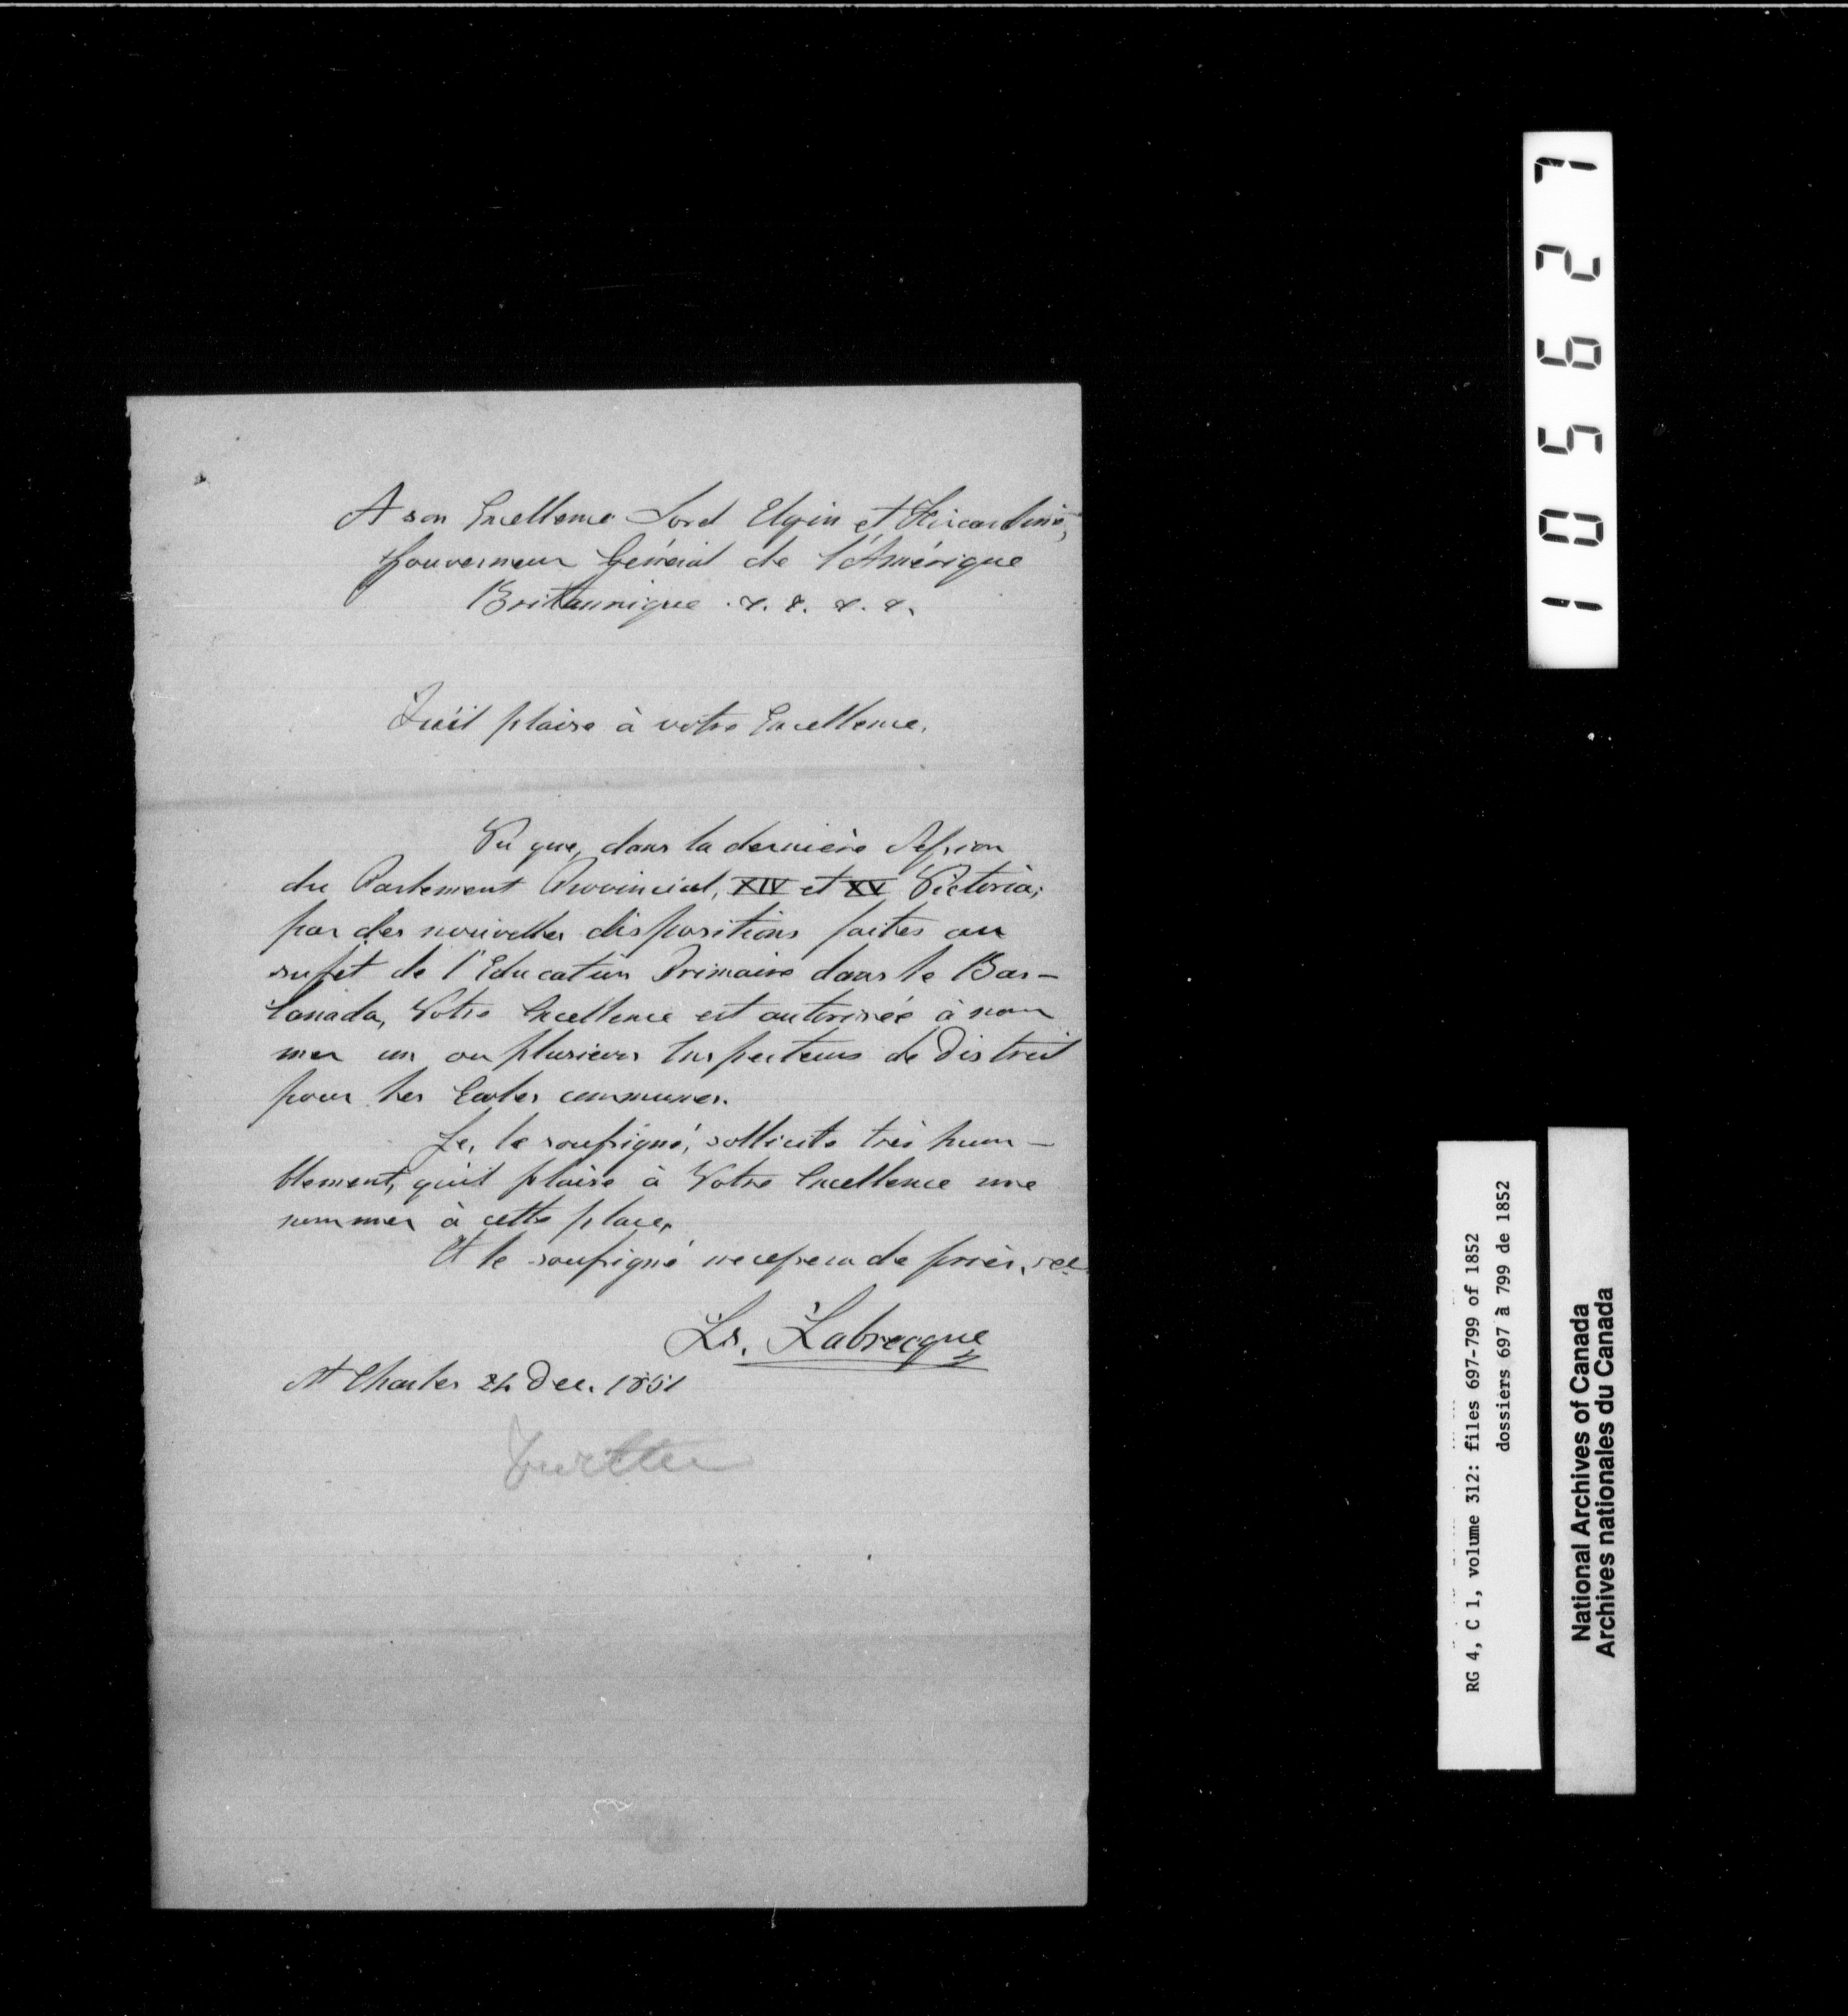 A son Excellence Lord Elgin et Kincardine,
Gouverneur Général de l'Amérique
Britannique. &. &. &. &.
Qu'il plaise à votre Excellence.
Vu que, dans la dernière Session
du Parlement Provincial, XIV et XV Victoria;
par des nouvelles dispositions faites au
sujet de l'Education Primaire dans le Bas-
Canada, Votre Excellence est autorisée à nom
mer un ou plusieurs Inspecteurs de District
pour les Ecoles communes.
Je, le soussigné, sollicite très hum-
blement, qu'il plaise à Votre Excellence me
nommer à cette place,
Et le soussigné ne cessera de prier,
Ls. Labrecque
St Charles 24 Dec. 1851
1 0 5 6 2 7
RG 4, C 1, volume 312: files 697-799 of 1852
dossiers 697 à 799 de 1852
National Archives of Canada
Archives nationales du Canada